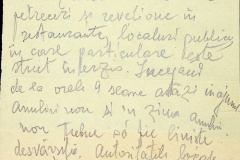 petreceri și revelione în
restaurante, localuri publice,
în case particulare este
strict interzis. Începând
de la orele 9 seara astăzi în ajunul
anului nou și 'n ziua anului
nou trebue să fie liniște
desvârșită. Autoritățile